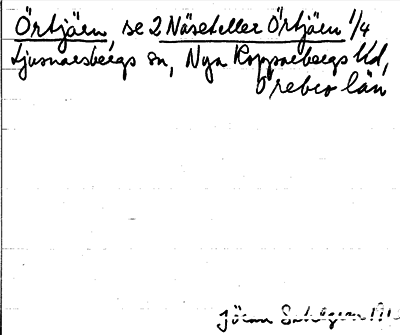 Örtjärn, se 2 Näset eller Örtjärn 1/4
Ljusnarsbergs sn, Nya Kopparbergs bld,
Örebro län
Jöran Sahlgren